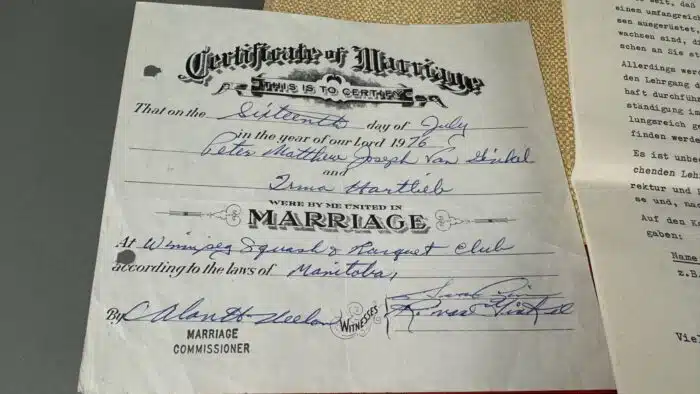 Certificate of Marriage
THIS IS TO CERTIFY
That on the Sixteenth day of July
in the year of our Lord 1976
Peter Matthew Joseph Van Ginkel
and
Irma Hartlieb
WERE BY ME UNITED IN
MARRIAGE
At Winnipeg Squash & Racquet Club
according to the laws of Manitoba,
By
MARRIAGE
COMMISSIONER
WITNESSES
einen umfangreich
sen ausgerüstet,
wachsen sind, di
schen an Sie st
Allerdings wer
den Lehrgang d
haft durchführ
ständigung im
lungsreich g
finden werde
Es ist unbe
chenden Leh
rektur und
se und, nac
Auf den K
gaben:
Name
z.B.
Viel